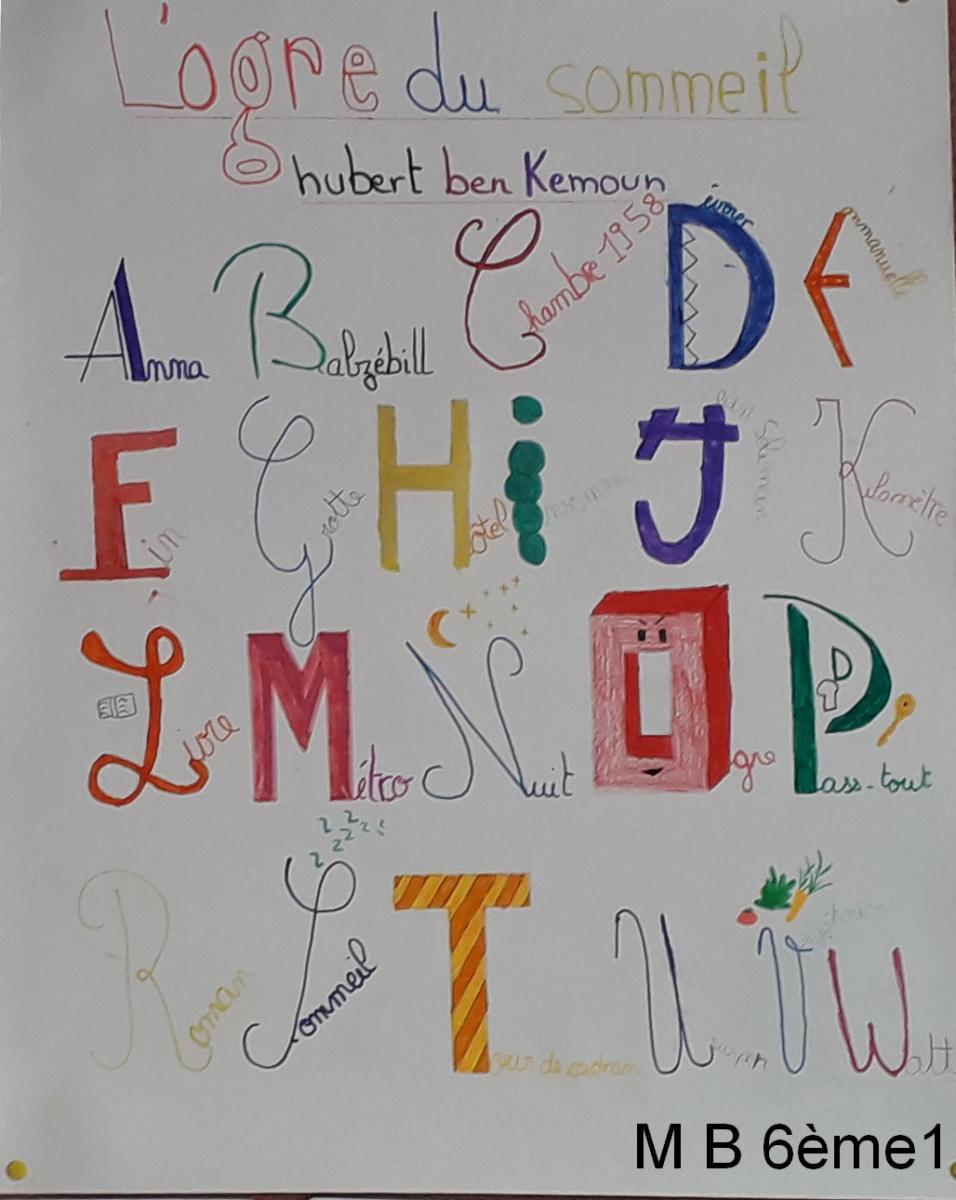 L'ogre du sommeil
hubert ben Kemoun
Anna Balzébill Chambre 1958 Dévorer Emmanuelle
Fin Grotte Hôtel J Kilomètre
Livre Métro Nuit Ogre Pass-tout
zzzzz
Roman Sommeil Tour de cadran U Végétarien Watt
M B 6ème1